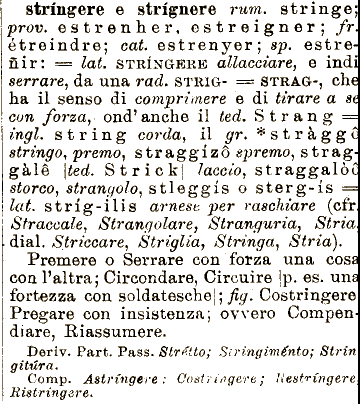 stríngere e strígnere rum. stringe;
prov. estrenher, estreigner; fr.
étreindre; cat. estrenyer; sp. estre-
ñir: = lat. STRÍNGERE allacciare, e indi
serrare, da una rad. STRIG- = STRAG-, che
ha il senso di comprimere e di tirare a se
con forza, ond'anche il ted. Strang =
ingl. string corda, il gr. *stràggô
stringo, premo, straggízô spremo, strag-
gàlê |ted. Strick| laccio, straggalóô
storco, strangolo, stleggís o sterg-ís =
lat. stríg-ilis arnese per raschiare (cfr.
Straccale, Strangolare, Stranguria, Stria,
dial. Striccare, Striglia, Stringa, Stria).
Premere o Serrare con forza una cosa
con l'altra; Circondare, Circuire |p. es. una
fortezza con soldatesche|; fig. Costringere
Pregare con insistenza; ovvero Compen-
diare, Riassumere.
Deriv. Part. Pass. Strétto; Stringiménto; Strin-
gitúra.
Comp. Astríngere; Costríngere; Restríngere,
Ristríngere.